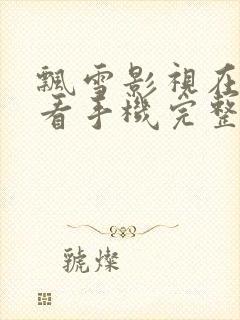 飄雪影視在
看手機完整
號燦